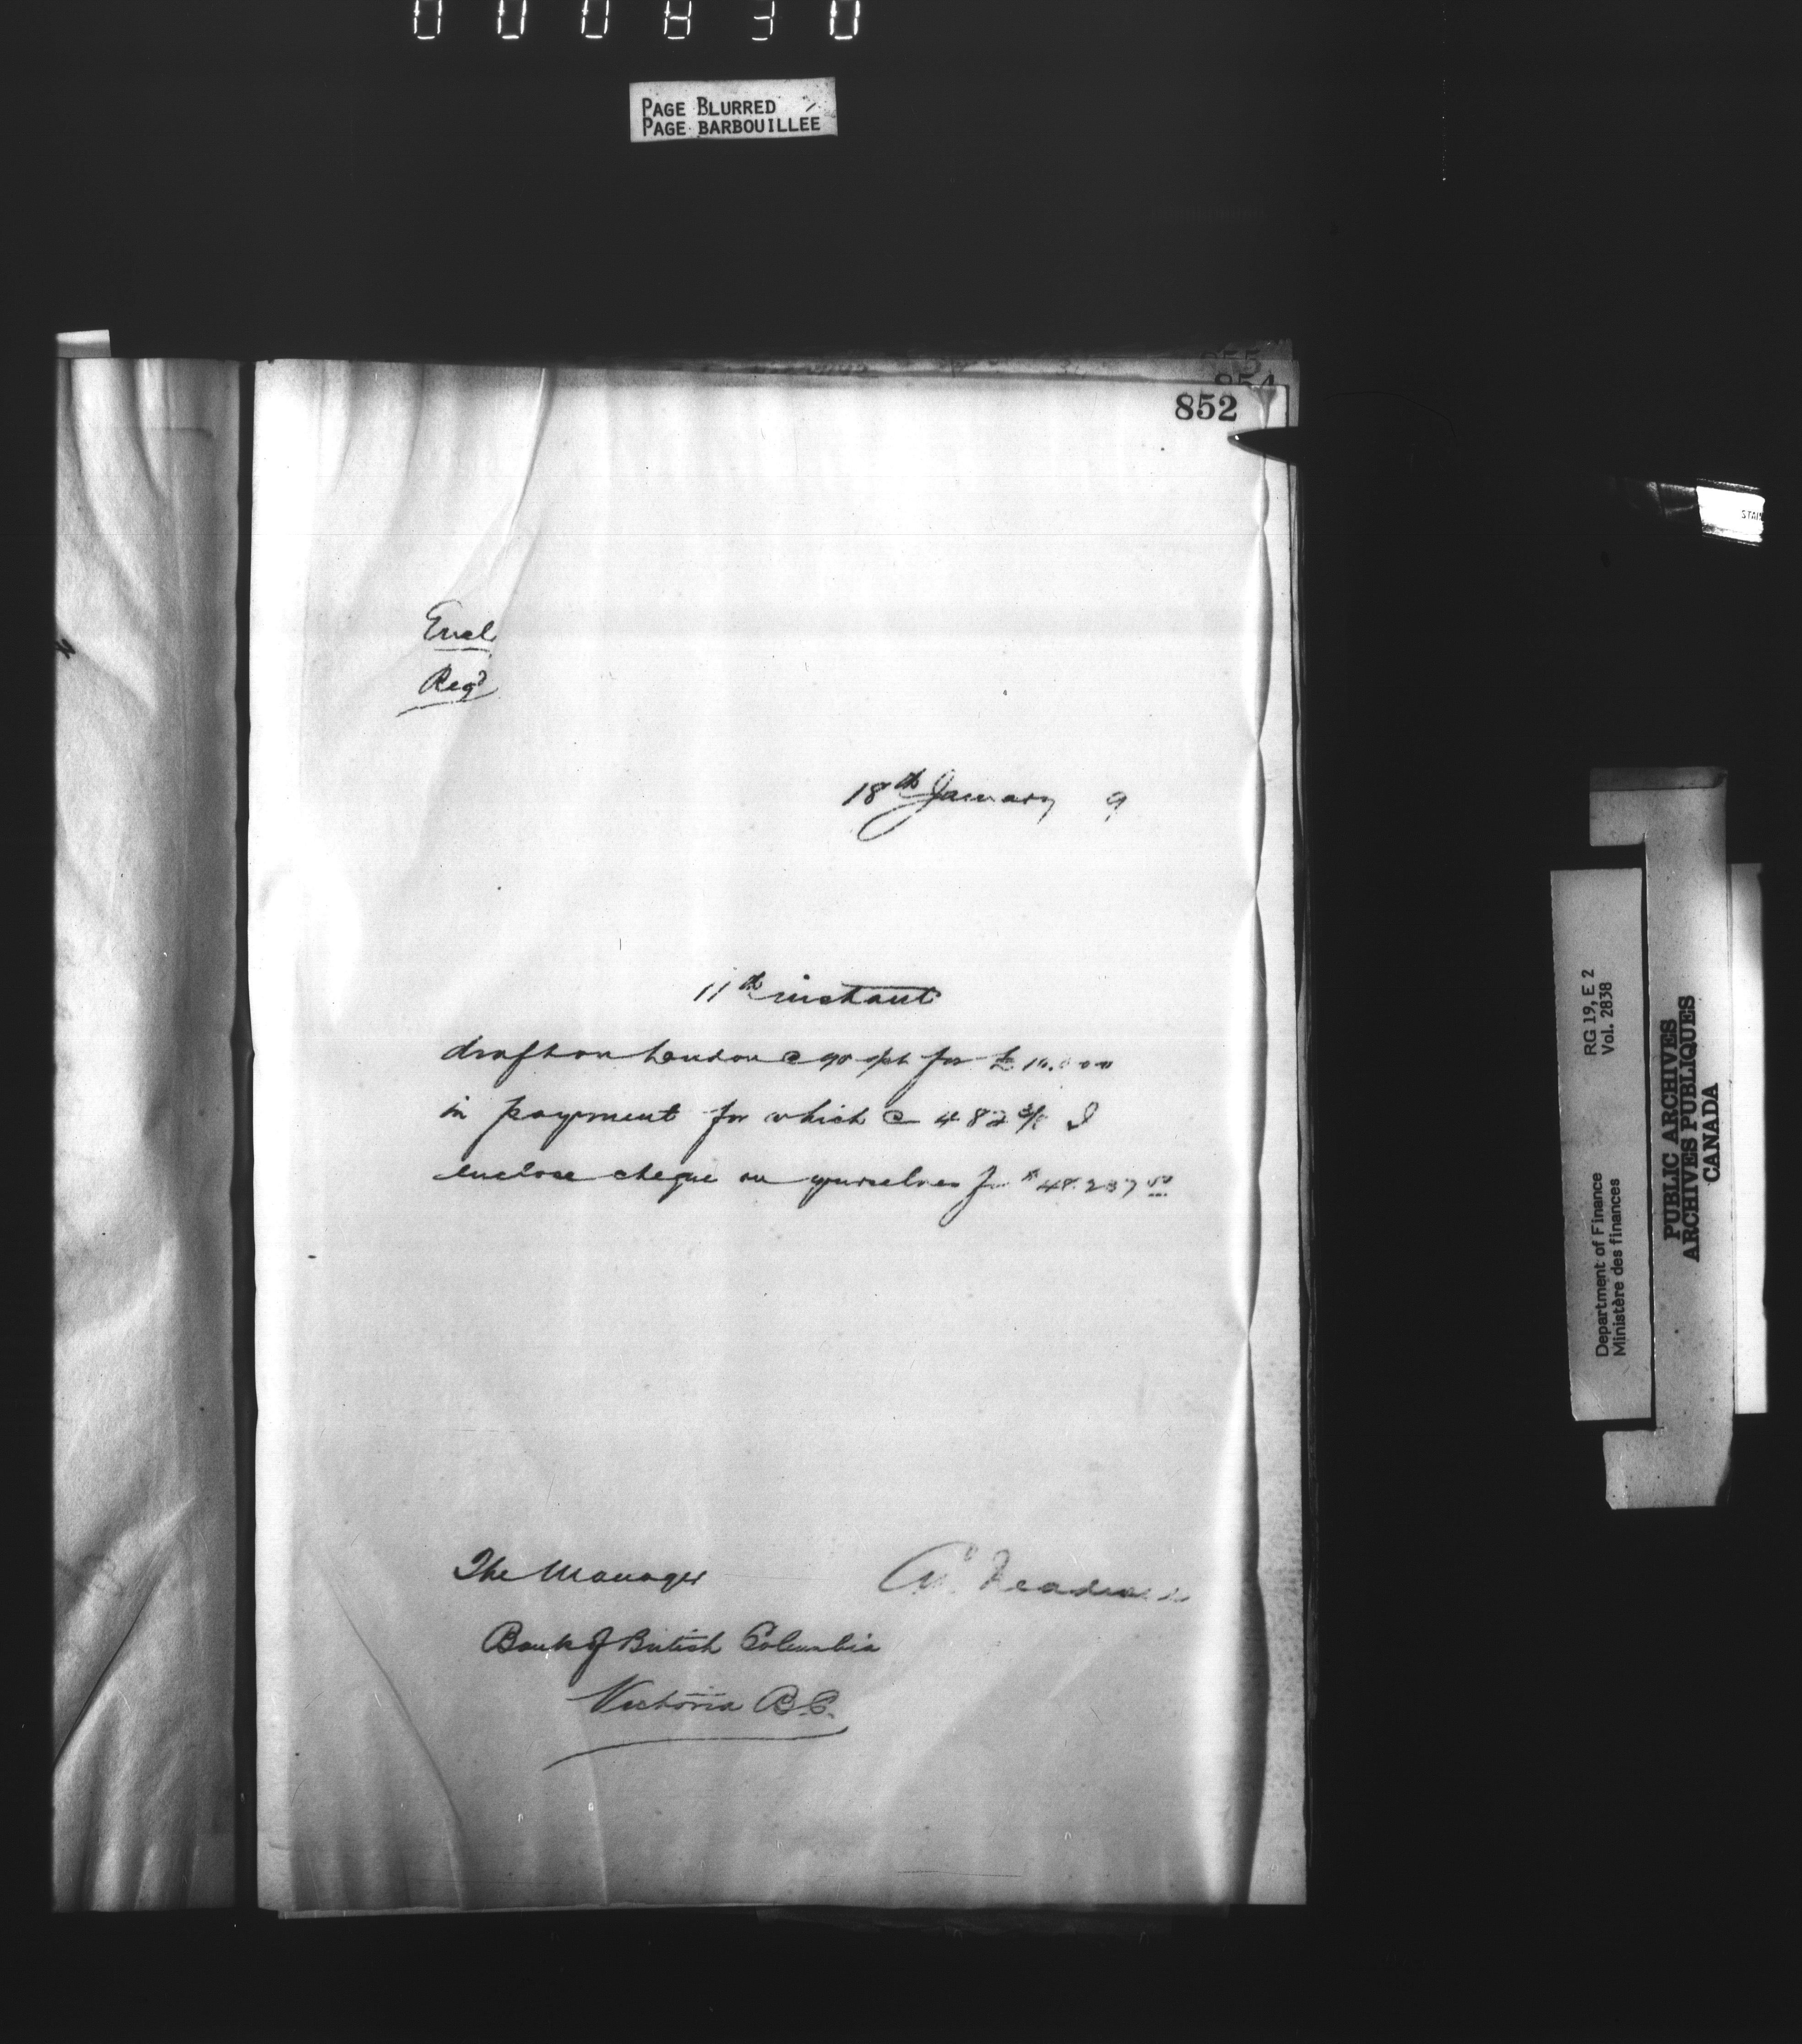 000830
PAGE BLURRED
PAGE BARBOUILLÉE
855
854
852
Encl.
Regd
18th January 9
11th instant
draft on London @ 90 d/st for £10.000
in payment for which @ 482 3/8 I
enclose cheque on yourselves for $48.237 50
The Manager
Bank of British Columbia
Victoria B.C.
STAIN
RG 19, E 2
Vol. 2838
Department of Finance
Ministère des finances
PUBLIC ARCHIVES
ARCHIVES PUBLIQUES
CANADA